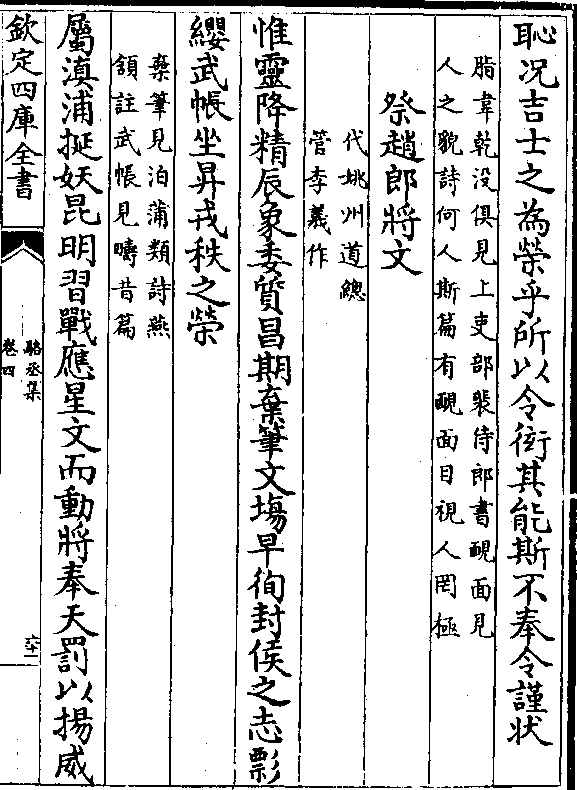 恥况吉士之為榮乎所以令衒其能斯不奉令謹狀
脂韋乾没俱見上吏部裴侍郎書靦面見
人之貌詩何人斯篇有靦面目視人罔極
祭趙郎將文
代姚州道總
管李義作
惟靈降精辰象委質昌期棄筆文塲早徇封侯之志影
纓武帳坐昇戎秩之榮
棄筆見泊蒲類詩燕
頷註武帳見疇昔篇
屬滇浦挻妖昆明習戰應星文而動將奉天罰以揚威
欽定四庫全書
駱丞集
卷四
六十一